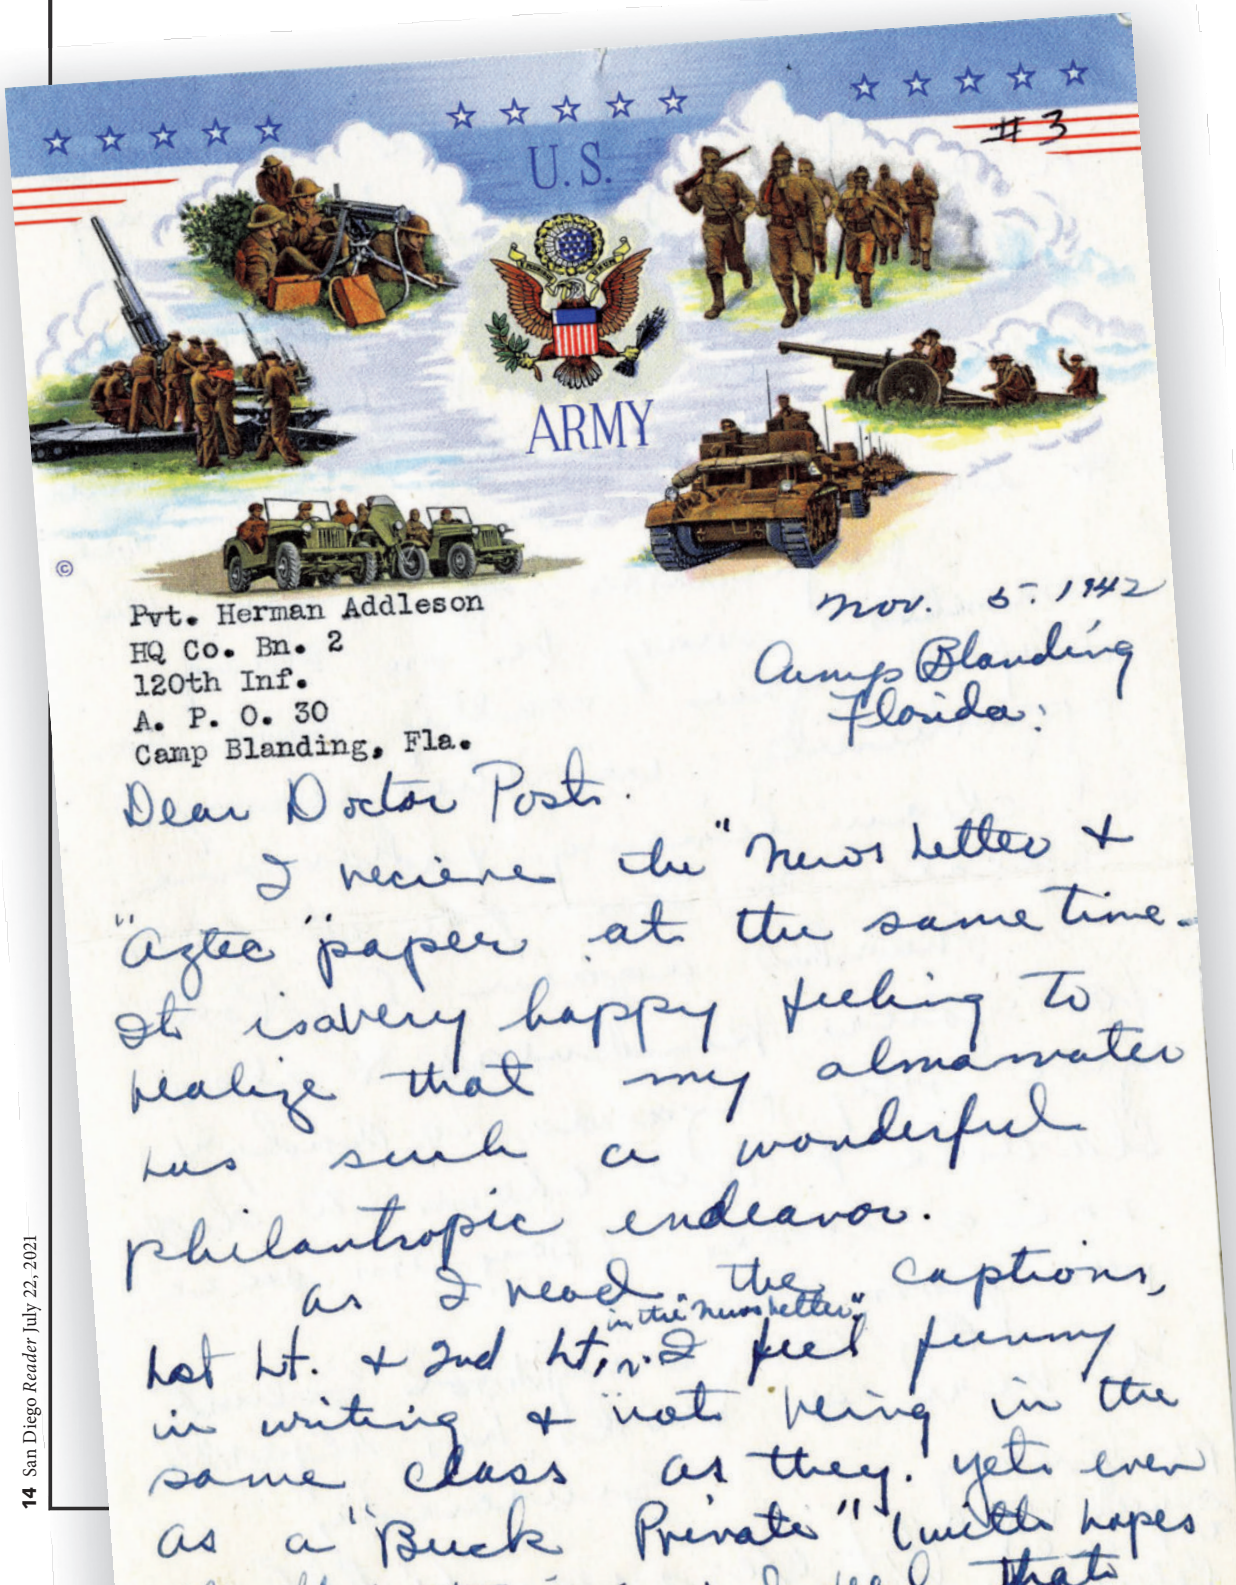 # 3
U.S.
ARMY
©
Pvt. Herman Addleson
HQ Co. Bn. 2
120th Inf.
A. P. O. 30
Camp Blanding, Fla.
Nov. 5. 1942
Camp Blanding
Florida:
Dear Doctor Post.
I recieve the "News Letter &
"Aztec" paper at the same time.
It is a very happy feeling to
realize that my almamater
has such a wonderful
philantropic endeavor.
As I read the captions,
in the "News Letter."
1st Lt. & 2nd Lt, I feel funny
in writing & not being in the
same class as they. Yet even
as a "Buck Private" (with hopes
that
14 San Diego Reader July 22, 2021